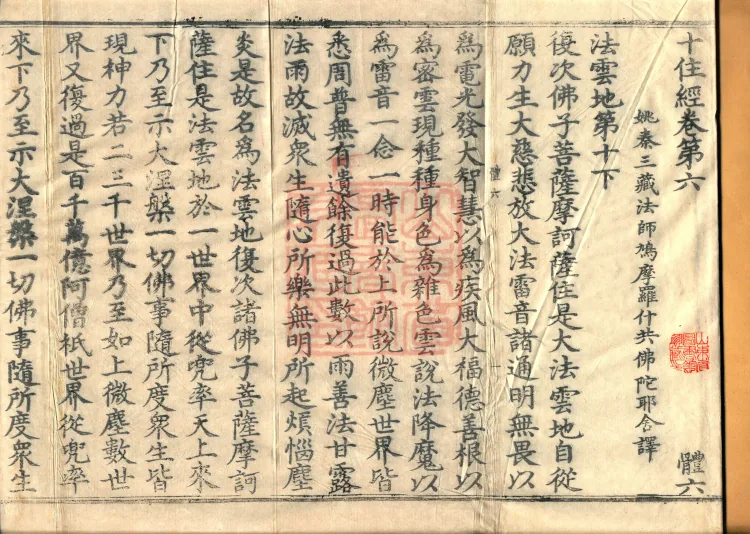 十住經卷第六 體六
姚秦三藏法師鳩摩羅什共佛陀耶舍譯
法雲地第十下
復次佛子菩薩摩訶薩住是大法雲地自從
願力生大慈悲放大法雷音諸通明無畏以
體六
為電光發大智慧以為疾風大福德善根以
為密雲現種種身色為雜色雲說法降魔以
為雷音一念一時能於上所說微塵世界皆
悉周普無有遺餘復過此數以雨善法甘露
法雨故滅衆生隨心所樂無明所起煩惱塵
炎是故名為法雲地復次諸佛子菩薩摩訶
薩住是法雲地於一世界中從兜率天上來
下乃至示大涅槃一切佛事隨所度衆生皆
現神力若二三千世界乃至如上微塵數世
界又復過是百千萬億阿僧祇世界從兜率
來下乃至示大涅槃一切佛事隨所度衆生